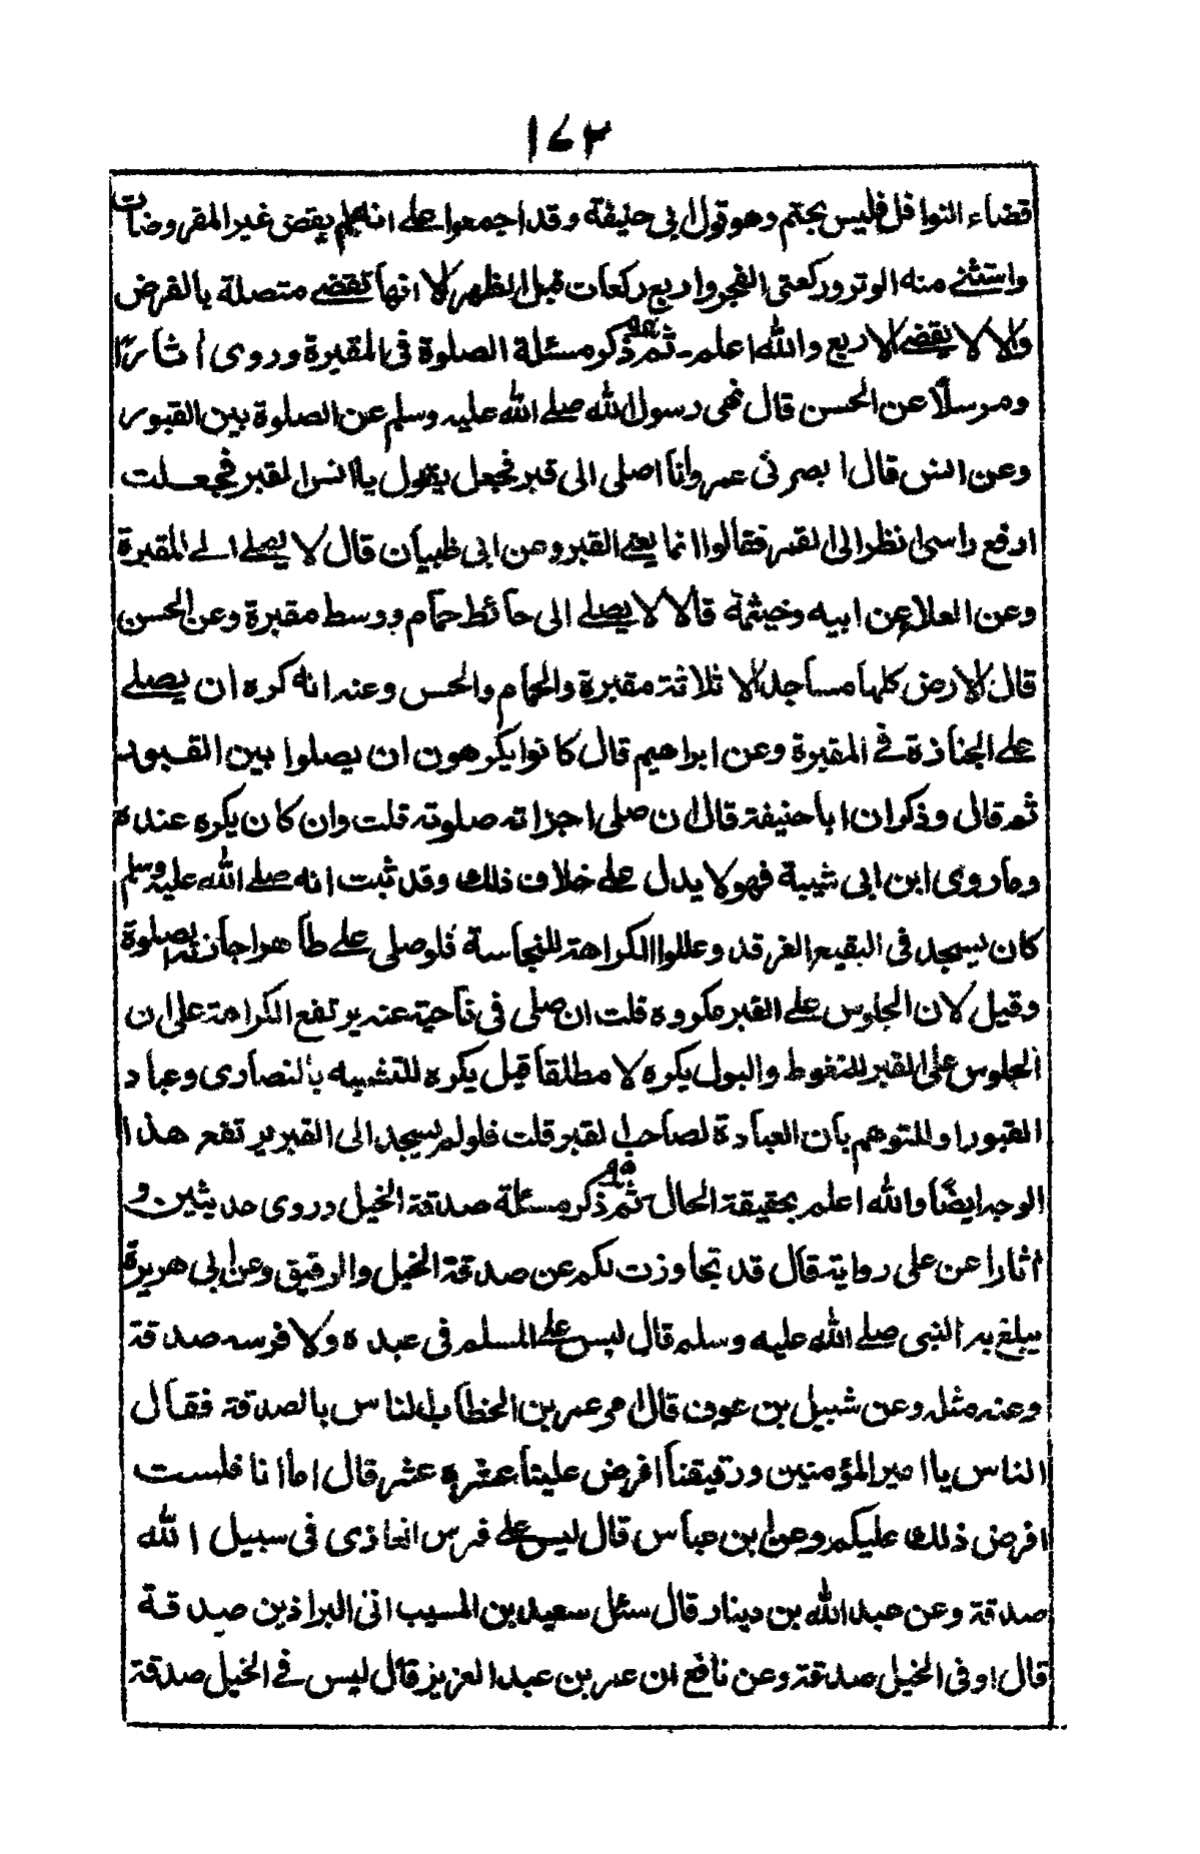 ١٤٣
قضاء النوافل فليس بحتم وهو قول ابى حنيفة وقد اجمعوا على انه لم يقض غير المفروضات
واستثنى منه الوتر وركعتى الفجر واربع ركعات قبل الظهر الا انها تقضى متصلة بالفرض
والا لا يقضى الاربع والله اعلم - ثم ذكر مسئلة الصلوة فى المقبرة وروى اٰثارًا
ومرسلًا عن الحسن قال نهى رسول الله صلى الله عليه وسلم عن الصلوة بين القبور
وعن انس قال ابصرنى عمر وانا اصلى الى قبر فجعل يقول يا انس القبر فجعلت
ارفع راسى انظر الى القمر فقالوا انما يعنى القبر وعن ابى ظبيان قال لا يصلى الى المقبرة
وعن العلاء عن ابيه وخيثمة قالا لا يصلى الى حائط حمّام ووسط مقبرة وعن الحسن
قال الارض كلها مساجد الا ثلاثة مقبرة والحمام والحس وعنه انه كره ان يصلى
على الجنازة فى المقبرة وعن ابراهيم قال كانوا يكرهون ان يصلوا بين القبور
ثم قال وذكر ان ابا حنيفة قال ان صلى اجزاته صلوته قلت وان كان يكره عنده
وما روى ابن ابى شيبة فهو لا يدل على خلاف ذلك وقد ثبت انه صلى الله عليه وسلم
كان يسجد فى البقيع الغرقد وعللوا الكراهة للنجاسة فلو صلى على طاهر اجازت الصلوة
وقيل لان الجلوس على القبر مكروه قلت ان صلى فى ناحية عنه يرتفع الكرامة على ان
الجلوس على القبر للتغوط والبول يكره لا مطلقا قيل يكره للتشبيه بالنصارى وعباد
القبور او للتوهم بان العبادة لصاحب القبر قلت فلو لم يسجد الى القبر يرتفع هذا
الوجه ايضًا والله اعلم بحقيقة الحال - ثم ذكر مسئلة صدقة الخيل وروى حديثين و
اٰثارا عن على رواية قال قد تجاوزت لكم عن صدقة الخيل والرقيق وعن ابى هريرة
يبلغ به النبى صلى الله عليه وسلم قال ليس على المسلم فى عبده ولا فرسه صدقة
وعنه مثله وعن شبيل بن عوف قال امر عمر بن الخطاب الناس بالصدقة فقال
الناس يا امير المؤمنين ورقيقنا افرض علينا عشرة عشر قال اما انا فلست
افرض ذلك عليكم وعن ابن عباس قال ليس على فرس الغازى فى سبيل الله
صدقة وعن عبد الله بن دينار قال سئل سعيد بن المسيب افى البراذين صدقة
قال اوفى الخيل صدقة وعن نافع ان عمر بن عبد العزيز قال ليس فى الخيل صدقة